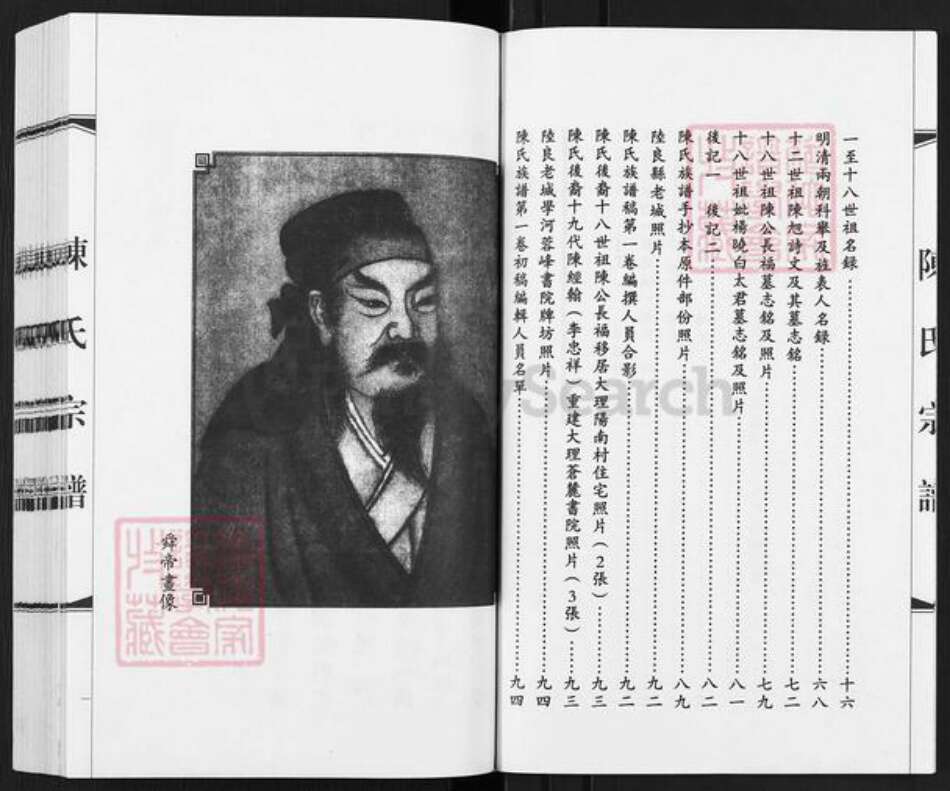 一至十八世祖名錄……十六
明清兩朝科舉及旌表人名錄……六八
十二世祖陳旭詩文及其墓志銘……七二
十八世祖陳公長福墓志銘及照片……七九
十八世祖妣楊曉白太君墓志銘及照片……八一
後記一 後記二……八二
陳氏族譜手抄本原件部份照片……八九
陸良縣老城照片……九二
陳氏族譜稿第一卷編撰人員合影……九二
陳氏後裔十八世祖陳公長福移居大理陽南村住宅照片(2張)……九三
陳氏後裔十九代陳經翰(李忠祥)重建大理蒼麓書院照片(3張)……九三
陸良老城學河蓉峰書院牌坊照片……九四
陳氏族譜第一卷初稿編輯人員名單……九四
舜帝畫像
陳氏宗譜
陳氏宗譜
一